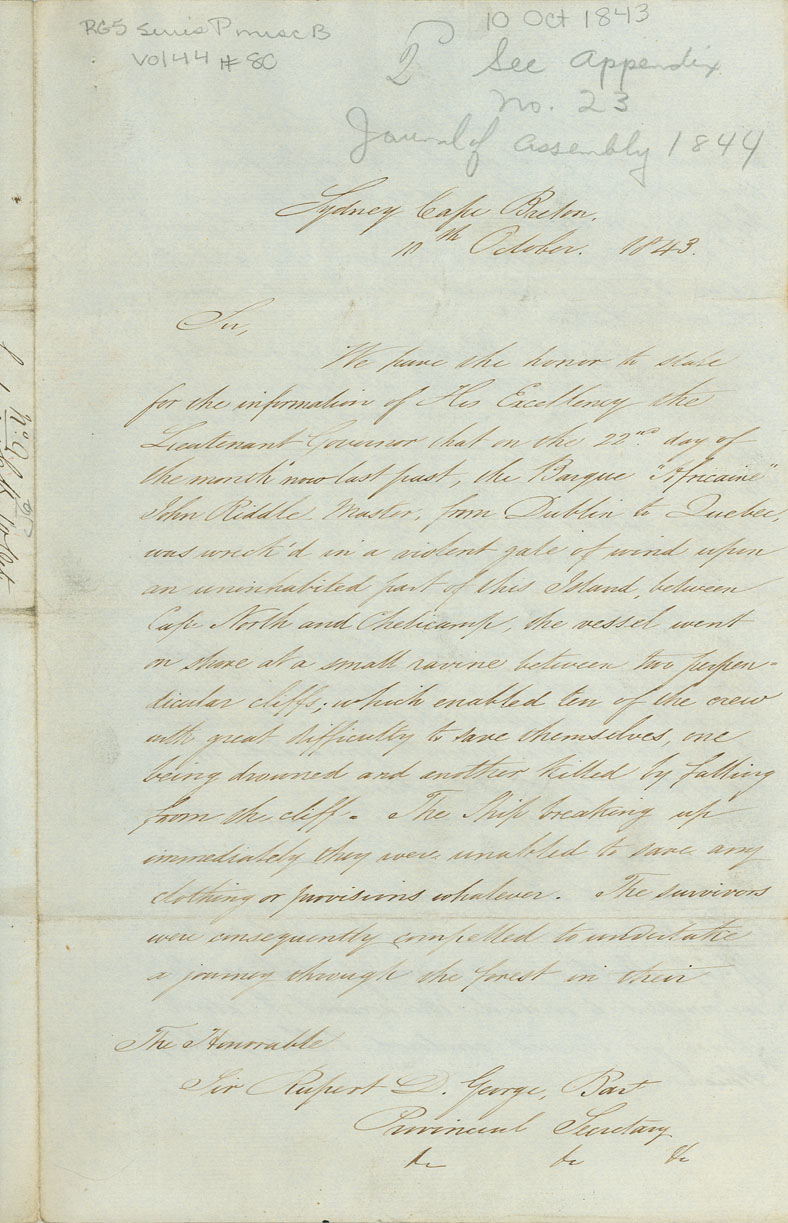 RG5 Series P misc B
Vol 44 # 80
10 Oct 1843
2 See Appendix
No. 23
Journal of Assembly 1844
Sydney Cape Breton.
10th October. 1843.
Sir,
We have the honor to state
for the information of His Excellency the
Lieutenant Governor that on the 22nd day of
the month now last past, the Barque "Africaine"
John Riddle Master, from Dublin to Quebec,
was wreck'd in a violent gale of wind upon
an uninhabited part of this Island, between
Cape North and Cheticamp, the vessel went
on shore at a small ravine between two perpen-
dicular cliffs; which enabled ten of the crew
with great difficulty to save themselves, one
being drowned and another killed by falling
from the cliff. The Ship breaking up
immediately they were unabled to save any
clothing or provisions whatever. The survivors
were consequently compelled to undertake
a journey through the forest in their
The Honorable
Sir Rupert D. George, Bart
Provincial Secretary
&c &c &c